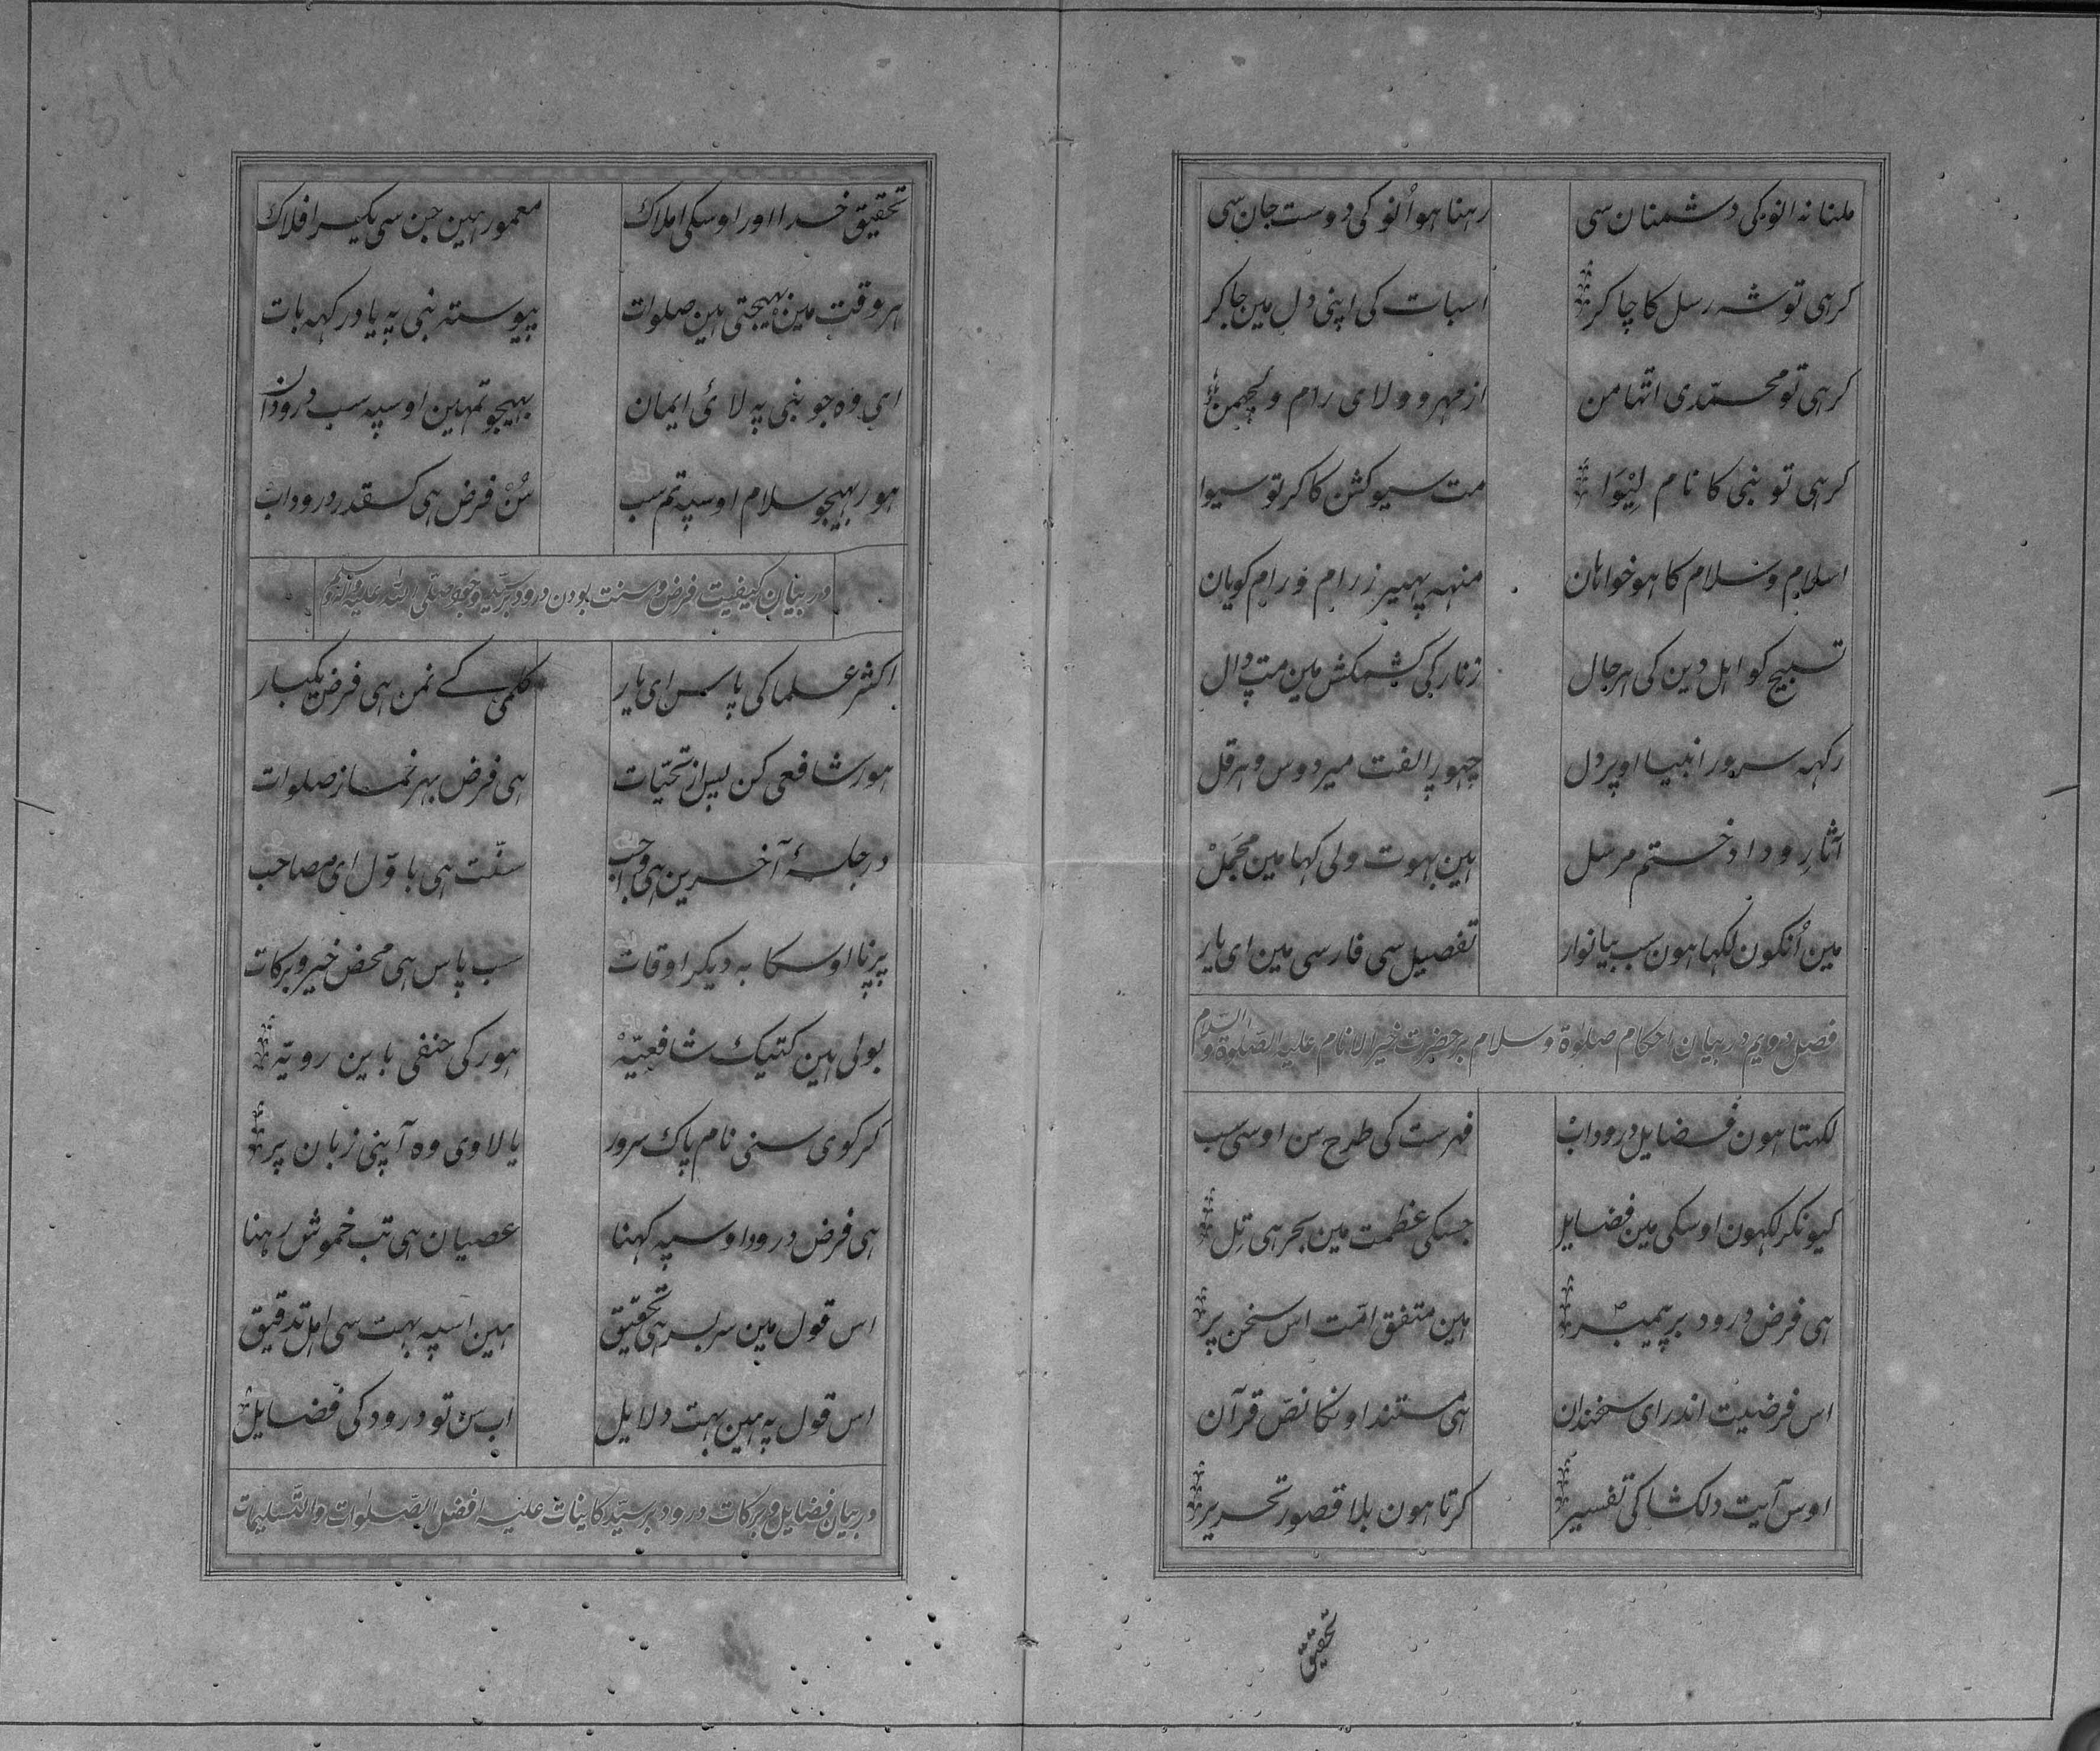 ملنا نہ انو کی دشمنان سی رہنا ہو اُنو کی دوست جان سی
کر ہی تو شہ رسل کا چاکر اسبات کی اپنی دل مین جا کر
کر ہی تو محمدی اتها من از مہر و ولای رام و لچھمن
کر ہی تو نبی کا نام لِیْوَا مت سیو کشن کا کر تو سیوا
اسلام و سلام کا ہو خواہان منہہ پہیر ز رام و رام کویان
تسبیح کو اہل دین کی ہر جال زنار کی کشمکش مین مت ڈال
رکہہ سرور انبیا اوپر دل چہور الفت میردوس و ہرقل
آثارِ وداد ختم مرسل ہین بہوت ولی کہا مین مجمَلْ
مین اُنکون لکہا ہون سب بیانوار تفصیل سی فارسی مین ای یار
فصل دویم در بیان احکام صلوٰة و سلام بر حضرت خیر الانام علیه الصلوة والسلام
لکہتا ہون فضایل درود اب فہرست کی طرح سن اوسی سب
کیونکر لکہون اوسکی مین فضایل جسکی عظمت مین بحر ہی تِل
ہی فرض درود بر پیمبر ہین متفق امّت اس سخن پر
اس فرضیت اندر ای سخندان ہی مستند اونکا نصّ قرآن
اوس آیت دلکشا کی تفسیر کرتا ہون بلا قصور تحریر
تحقیق
تحقیق خدا اور اوسکی املاک معمور ہین جن سی یکسر افلاک
ہر وقت مین بہیجتی ہین صلوات پیوستہ نبی پہ یاد رکہہ بات
ای وہ جو نبی پہ لائ ایمان بہیجو تمہین اوسپہ سب درودان
ہور بہیجو سلام اوسپہ تم سب سُنْ فرض ہی کسقدر درود اب
در بیان کیفیت فرض و سنت بودن درود بر سید وجود صلی الله علیه و آله وسلم
اکثر علما کی پاس ای یار کلمی کے نمن ہی فرض یکبار
ہور شافعی کن پس از تحیّات ہی فرض بہر نماز صلوات
در جلسۂ آخرین ہی واجب سنّت ہی باوّل ای مصاحب
پرنا اوسکا به دیکر اوقات سب پاس ہی محض خیر و برکات
بولی ہین کتیک شافعیّہْ ہور کی حنفی باین رویّہ
کر کوی سنی نام پاک سرور یا لاوی وہ آپنی زبان پر
ہی فرض درود اوسپہ کہنا عصیان ہی تب خموش رہنا
اس قول مین سربسر ہی تحقیق ہین اسپہ بہت سی اہل تدقیق
اس قول پہ ہین بہت دلایل اب سن تو درود کی فضایل
در بیان فضایل و برکات درود بر سیّد کاینات علیه افضل الصّلوات والتّسلیمات